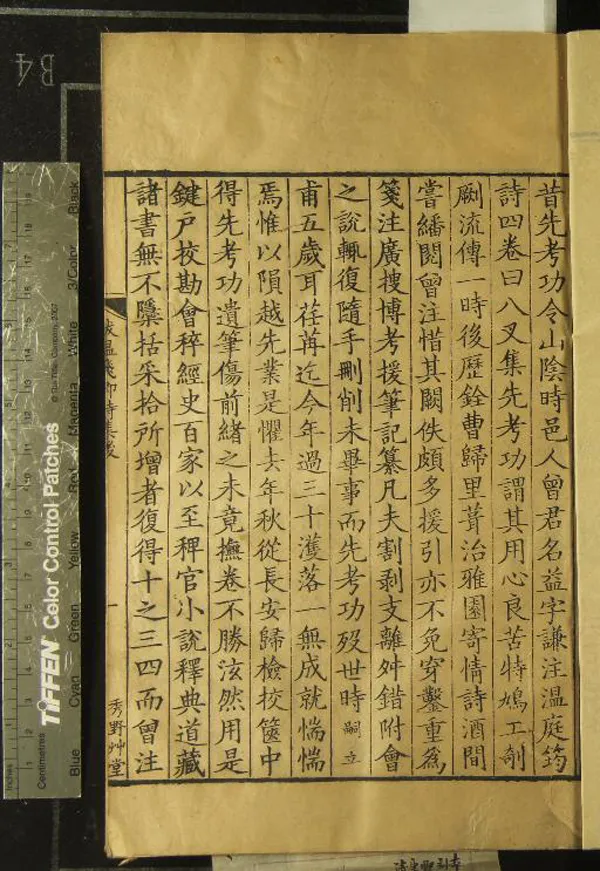 昔先考功令山陰時邑人曾君名益字謙注溫庭筠
詩四卷曰八叉集先考功謂其用心良苦特鳩工剞
劂流傳一時後歷銓曹歸里葺治雅園寄情詩酒間
嘗繙閱曾注惜其闕佚頗多援引亦不免穿鑿重爲
箋注廣搜博考援筆記纂凡夫割剥支離舛錯附會
之說輒復隨手刪削未畢事而先考功殁世時嗣立
甫五歲耳荏苒迄今年過三十濩落一無成就惴惴
焉惟以隕越先業是懼去年秋從長安歸檢挍篋中
得先考功遺筆傷前緒之未竟撫卷不勝泫然用是
鍵戶挍勘會稡經史百家以至稗官小說釋典道藏
諸書無不檃括采拾所增者復得十之三四而曾注
溫飛卿詩集後
一
秀野艸堂
B4
Inches
Centimetres
TIFFEN Color Control Patches
© The Tiffen Company, 2007
Blue
Cyan
Green
Yellow
Red
Magenta
White
3/Color
Black